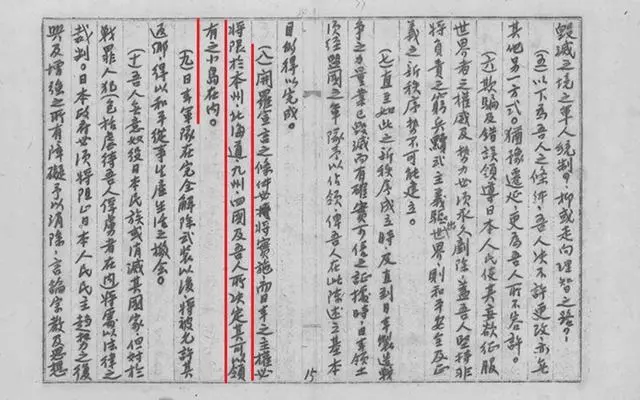 毀滅之境之軍人統制？抑或走向理智之路？
(五)以下為吾人之條件，吾人決不許更改，亦無
其他另一方式。猶豫遷延，更為吾人所不容許。
(六)欺騙及錯誤領導日本人民使其妄欲征服
世界者之權威及勢力必須永久剷除，蓋吾人堅持非
將負責之窮兵黷武主義驅出世界，則和平安全及正
義之新秩序勢不可能建立。
(七)直至如此之新秩序成立時，及直到日本製造戰
爭之力量業已毀滅而有確實可信之証據時，日本領土
須經盟國之軍隊予以佔領，俾吾人在此陳述之基本
目的得以完成。
15
(八)開羅宣言之條件必將實施，而日本之主權必
將限於本州、北海道、九州、四國及吾人所決定其可以領
有之小島在內。
(九)日本軍隊在完全解除武裝以後，將被允許其
返鄉，得以和平從事生產生活之機會。
(十)吾人無意奴役日本民族或消滅其國家，但對於
戰罪人犯包括虐待吾人俘虜者在內將處以法律之
裁判。日本政府必須將阻止日本人民民主趨勢之復
興及增強之所有障礙予以消除，言論宗教及思想